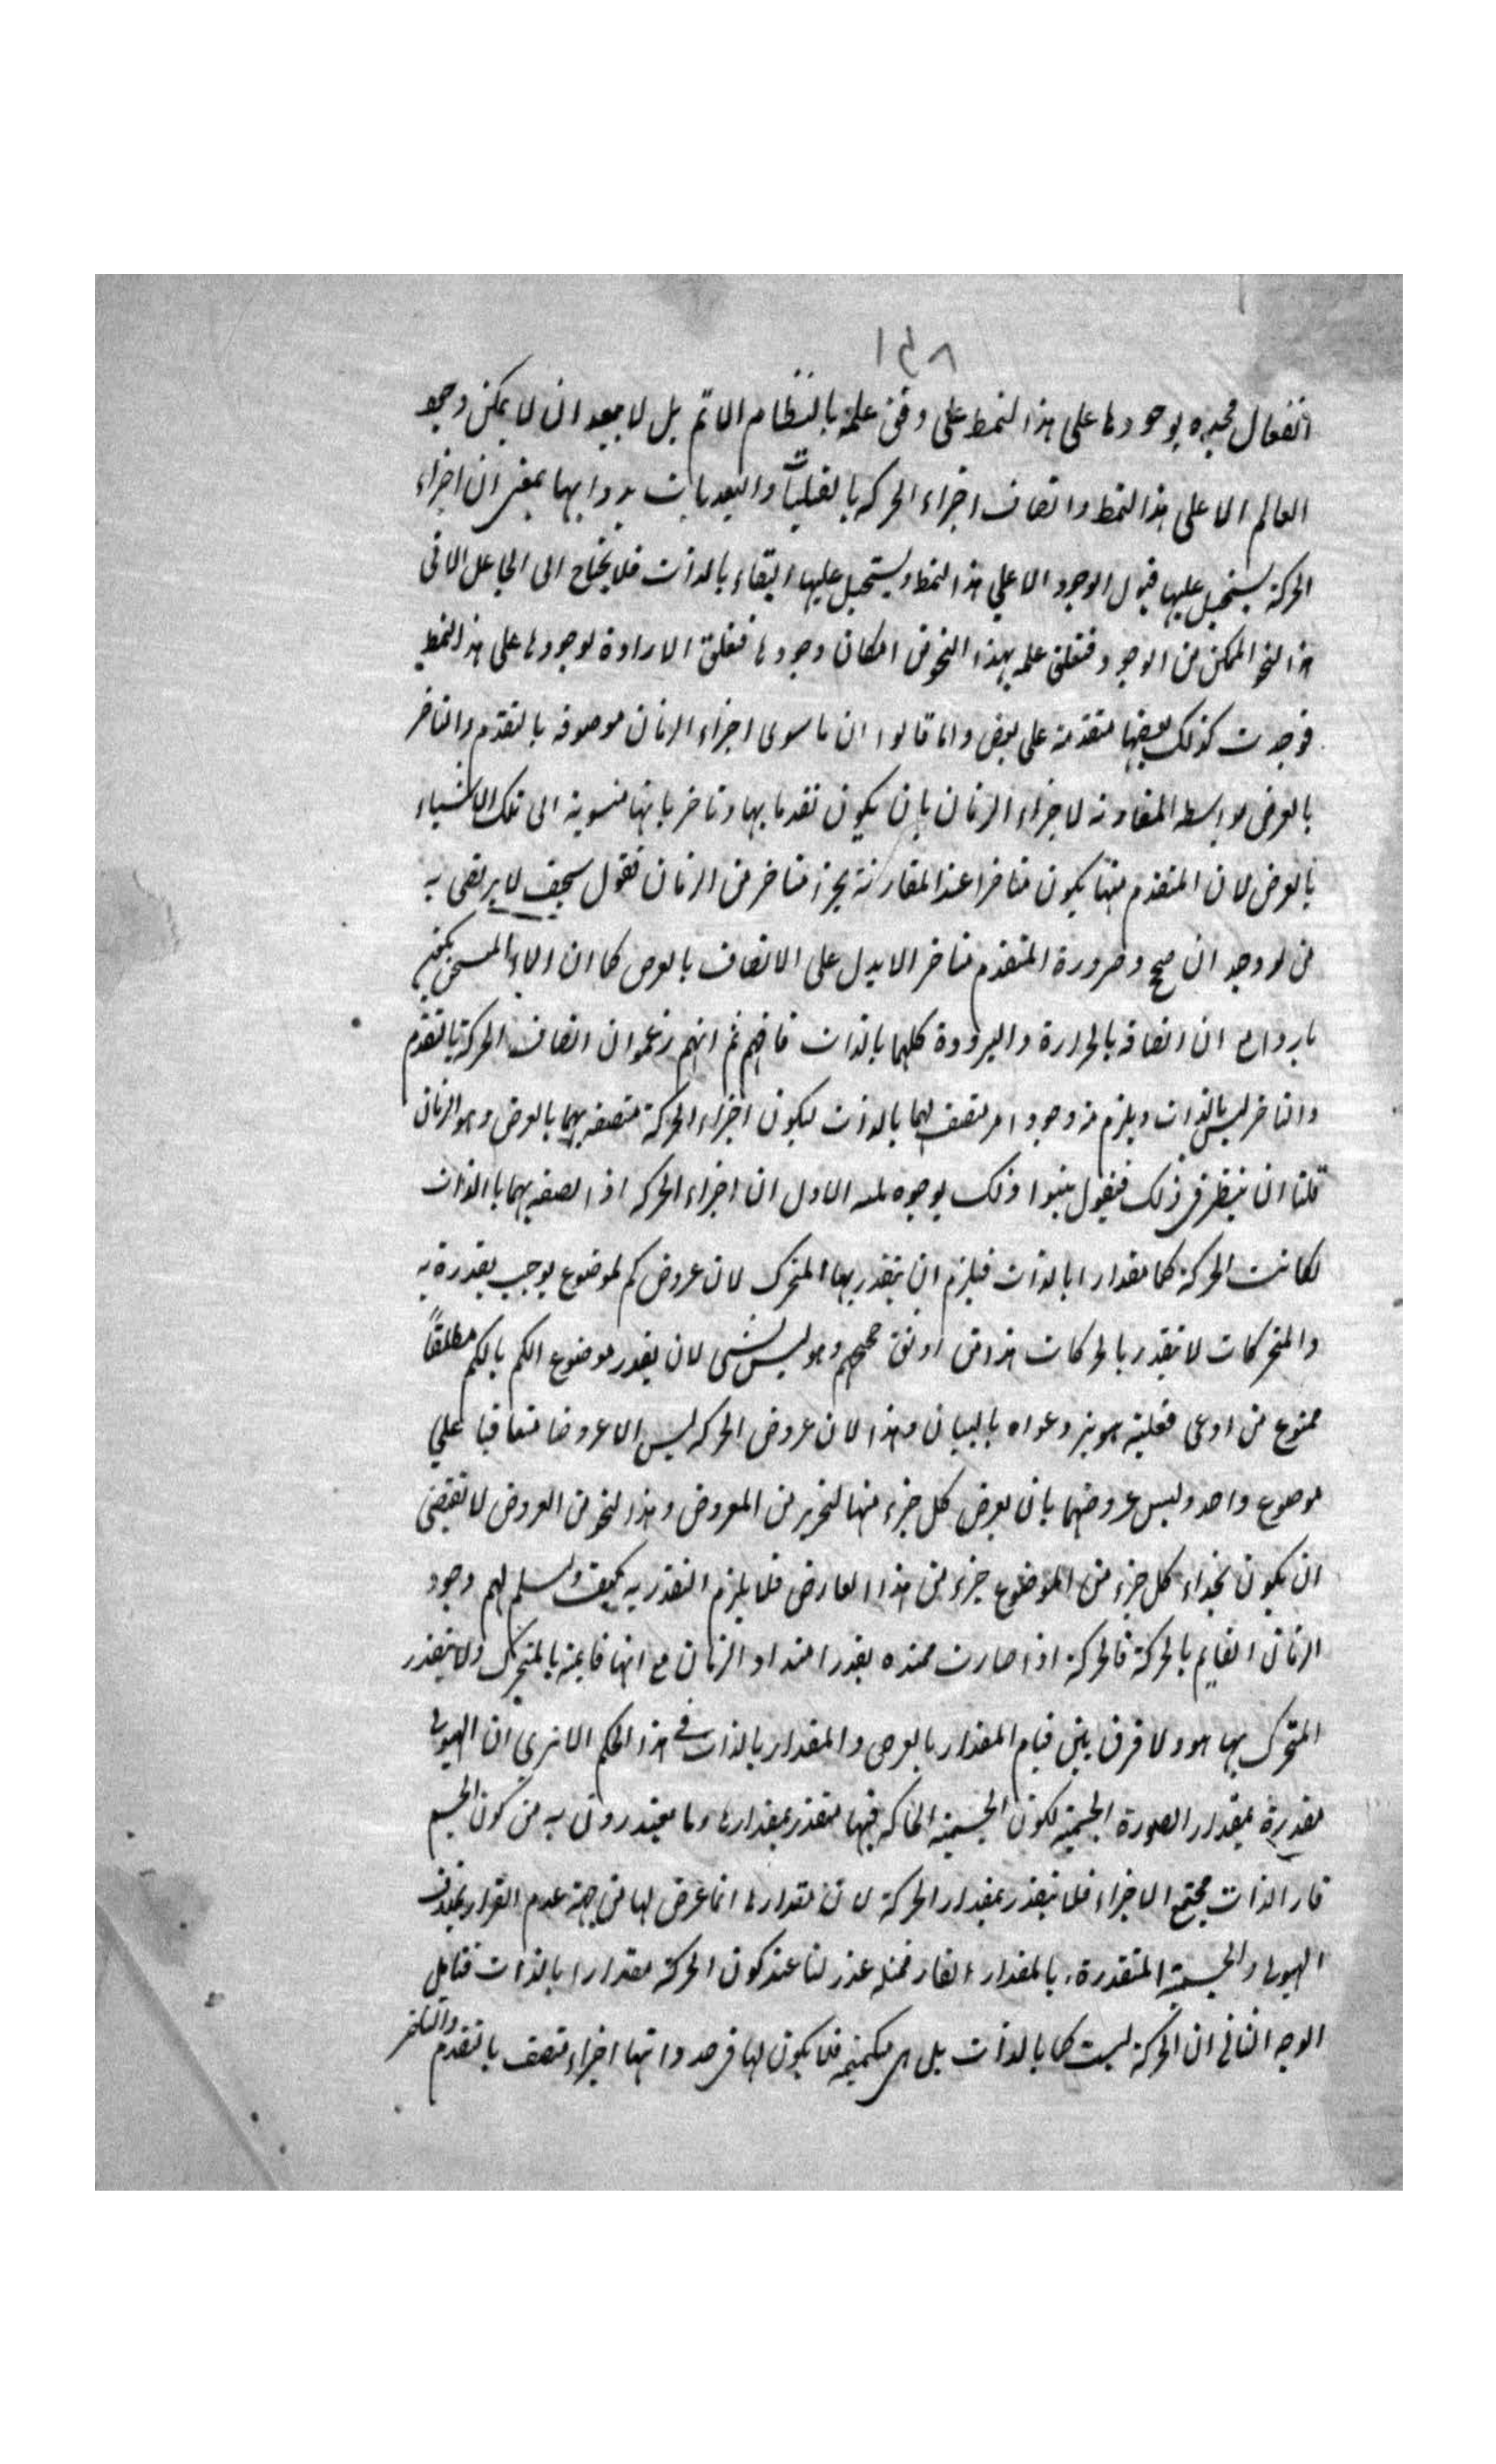 ١٥٨
انفعال محيده بوجودها على هذا النمط على وفق علمه بالنظام الاتم بل لا يبعد ان لا يمكن وجود
العالم الا على هذا النمط واتصاف اجزاء الحركه بالقبليات والبعديات بذواتها بمعنى ان اجزاء
الحركة يستحيل عليها قبول الوجود الا على هذا النمط ويستحيل عليها البقاء بالذات فلا يحتاج الى الجاعل الا في
هذا النحو الممكن من الوجود فتعلق علمه بهذا النحو من امكان وجودها فتعلق الارادة لوجودها على هذا النمط
فوجدت كذلك بعضها متقدمة على بعض واما قالوا ان ما سوى اجزاء الزمان موصوفه بالتقدم والتاخر
بالعرض بواسطه المقارنه لاجزاء الزمان بان يكون تقدماتها وتاخرباتها منسوبة الى تلك الاشياء
بالعرض لان المتقدم منها يكون متاخرا عند المقارنة بجزء متاخر من الزمان فقول سخيف لا يرتضى به
من له وجدان صحيح وضرورة المتقدم متاخرا لا يدل على الاتصاف بالعرض كما ان الماء المسخن يكون
باردا مع ان اتصافه بالحرارة والبرودة كلهما بالذات فافهم ثم انهم زعموا ان اتصاف الحركة بالتقدم
والتاخر ليس بالذات ويلزم منه وجود امر متصف بهما بالذات ليكون اجزاء الحركة متصفه بهما بالعرض وهو الزمان
قلنا ان ننظر في ذلك فنقول بينوا ذلك بوجوه ثلثه الاول ان اجزاء الحركه اذ اتصفه بهما بالذات
لكانت الحركة كما مقدارا بالذات فيلزم ان يتقدر بها المتحرك لان عروض كم لموضوع يوجب تقدره به
والمتحركات لا تتقدر بالحركات هذا من اوثق حججهم وهو ليس بشئ لان تقدر موضوع الكم بالكم مطلقاً
ممنوع من ادعى فعليه تنوير دعواه بالبيان وهذا لان عروض الحركه ليس الا عروضا متعاقبا على
موضوع واحد وليس عروضها بان يعرض كل جزء منها لجزء من المعروض وهذا النحو من العروض لا تقتضى
ان يكون بحذاء كل جزء من الموضوع جزء من هذا العارض فلا يلزم التقدر به كيف وسلم لهم وجود
الزمان القايم بالحركة فالحركة اذا صارت ممتده بقدر امتداد الزمان مع انها قايمة بالمتحرك ولا يتقدر
المتحرك بها هو ولا فرق بين قيام المقدار بالعرض والمقدار بالذات في هذا الحكم الا ترى ان الهيولى
متقدرة بمقدار الصورة الجسمية لكون الجسمية الحاله فيها متقدر بمقدارها وما يعتذرون به من كون الجسم
قار الذات مجتمع الاجزاء فلا يتقدر بمقدار الحركة لان مقدارها انما عرض لها من جهة عدم القرار بخلاف
الهيولى والجسمية المتقدرة بالمقدار القار فمثله عذر لنا عند كون الحركة مقدارا بالذات فتامل
الوجه الثاني ان الحركة ليست كما بالذات بل هي متكممة فلا يكون لها في حد ذاتها اجزاء تتصف بالتقدم والتاخر